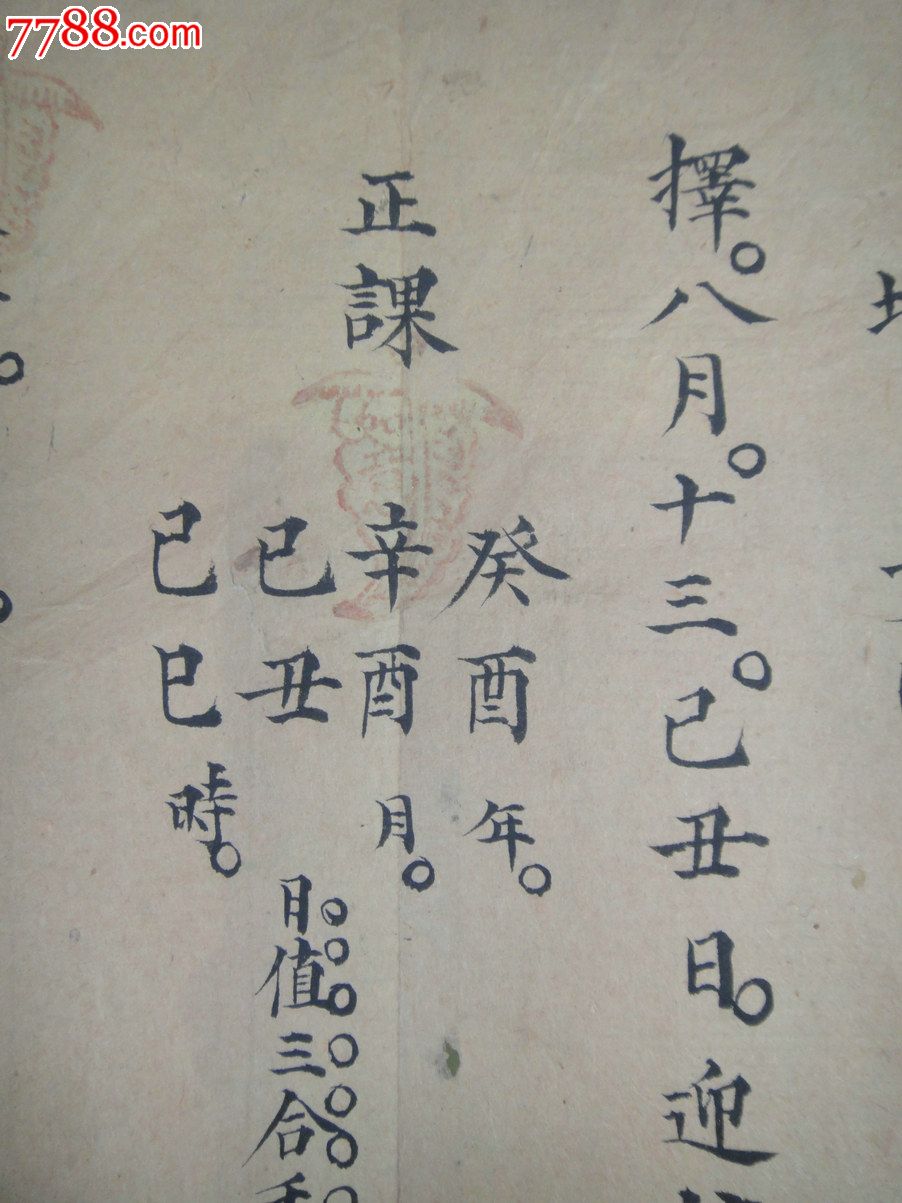 7788.com
擇。八月。十三。己丑日。迎
正課
癸酉年。
辛酉月。
己丑日。值。三。合。
己巳時。